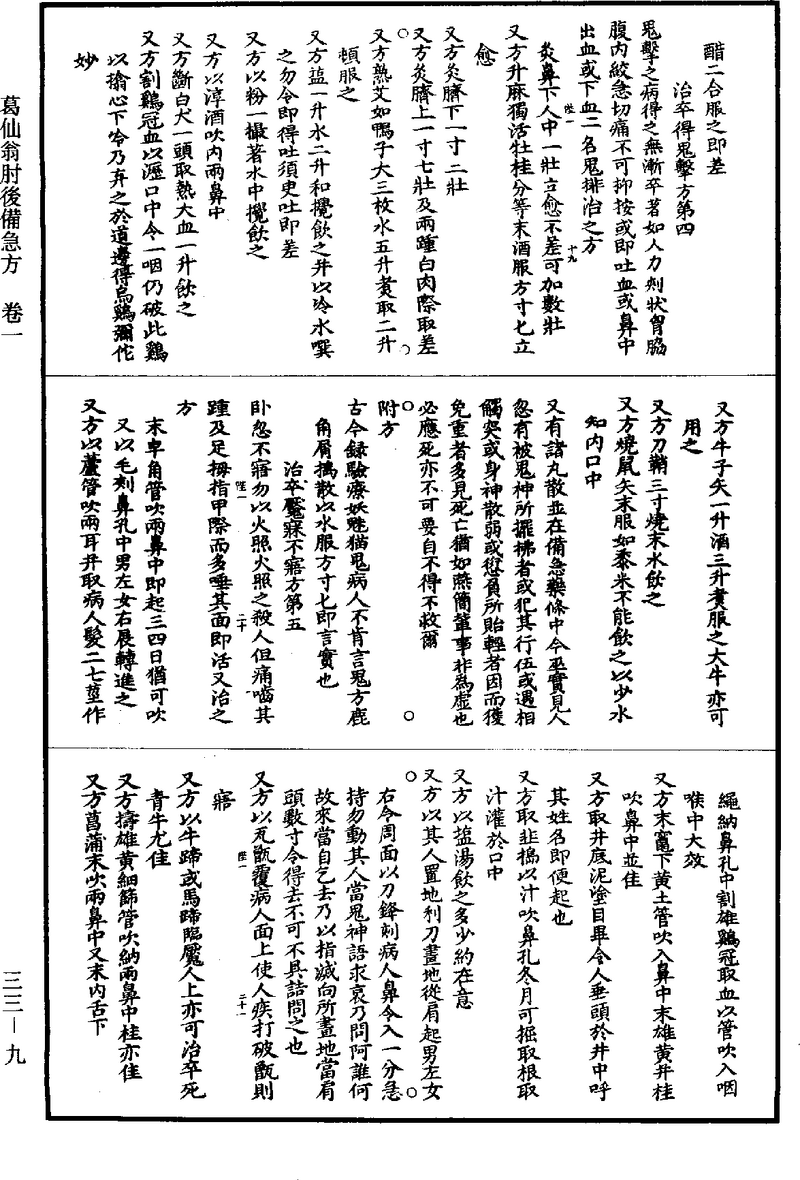 醋二合服之即差
治卒得鬼擊方第四
鬼擊之病得之無漸卒著如人力刾狀胷脇
腹内絞急切痛不可抑按或即吐血或鼻中
出血或下血一名鬼排治之方
灸鼻下人中一壯立愈不差可加數壯
又方升麻獨活牡桂分等末酒服方寸匕立
愈
又方灸臍下一寸二壯
又方灸臍上一寸七壯及兩踵白肉際取差
又方熟艾如鴨子大三枚水五升煑取二升
頓服之
又方鹽一升水二升和攪飲之并以冷水噀
之勿令即得吐須臾吐即差
又方以粉一撮著水中攪飲之
又方以淳酒吹内兩鼻中
又方斷白犬一頭取熱犬血一升飲之
又方割鷄冠血以瀝口中令一咽仍破此鷄
以搶心下冷乃弃之於道邊得烏鷄彌佗
妙
又方牛子矢一升酒三升煑服之大牛亦可
用之
又方刀鞘三寸燒末水飲之
又方燒鼠矢末服如黍米不能飲之以少水
和内口中
又有諸丸散並在備急藥條中今巫實見人
忽有被鬼神所擺拂者或犯其行伍或遇相
觸突或身神散弱或愆負所貽輕者因而獲
免重者多見死亡猶如燕簡輩事非爲虚也
必應死亦不可要自不得不救爾
附方
古今録驗療妖魅猫鬼病人不肯言鬼方鹿
角屑擣散以水服方寸匕即言實也
治卒魘寐不寤方第五
卧忽不寤勿以火照火照之殺人但痛嚙其
踵及足拇指甲際而多唾其面即活又治之
方
末皁角管吹兩鼻中即起三四日猶可吹
又以毛刺鼻孔中男左女右展轉進之
又方以蘆管吹兩耳并取病人髮二七莖作
繩納鼻孔中割雄鷄冠取血以管吹入咽
喉中大效
又方末竈下黄土管吹入鼻中末雄黄并桂
吹鼻中並佳
又方取井底泥塗目畢令人垂頭於井中呼
其姓名即便起也
又方取韭擣以汁吹鼻孔冬月可掘取根取
汁灌於口中
又方以鹽湯飲之多少約在意
又方以其人置地利刀畫地從肩起男左女
右令周面以刀鋒刻病人鼻令入一分急
持勿動其人當鬼神語求哀乃問阿誰何
故來當自乞去乃以指滅向所畫地當肩
頭數寸令得去不可不具詰問之也
又方以瓦甑覆病人面上使人疾打破甑則
寤
又方以牛蹄或馬蹄臨魘人上亦可治卒死
青牛尤佳
又方擣雄黄細篩管吹納兩鼻中桂亦佳
又方菖蒲末吹兩鼻中又末内舌下
葛仙翁肘後備急方 卷一
三三—九